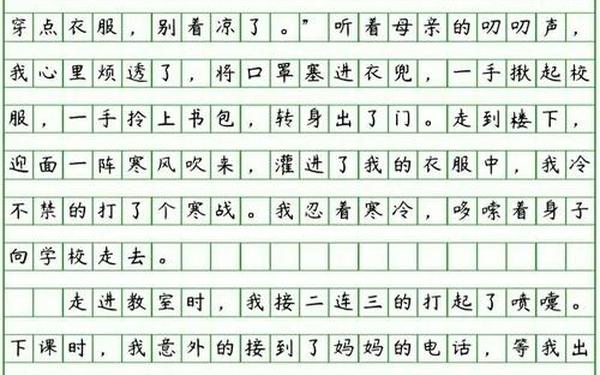 穿点衣服，别着凉了。”听着母亲的叨叨声，
我心里烦透了，将口罩塞进衣兜，一手揪起校
服，一手拎上书包，转身出了门。走到楼下，
迎面一阵寒风吹来，灌进了我的衣服中，我冷
不禁的打了个寒战。我忍着寒冷，哆嗦着身子
向学校走去。
走进教室时，我接二连三的打起了喷嚏。
下课时，我意外的接到了妈妈的电话，等我出